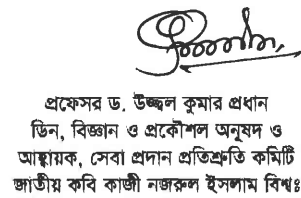 প্রফেসর ড. উজ্জ্বল কুমার প্রধান
ডিন, বিজ্ঞান ও প্রকৌশল অনুষদ ও
আহ্বায়ক, সেবা প্রদান প্রতিশ্রুতি কমিটি
জাতীয় কবি কাজী নজরুল ইসলাম বিশ্বঃ